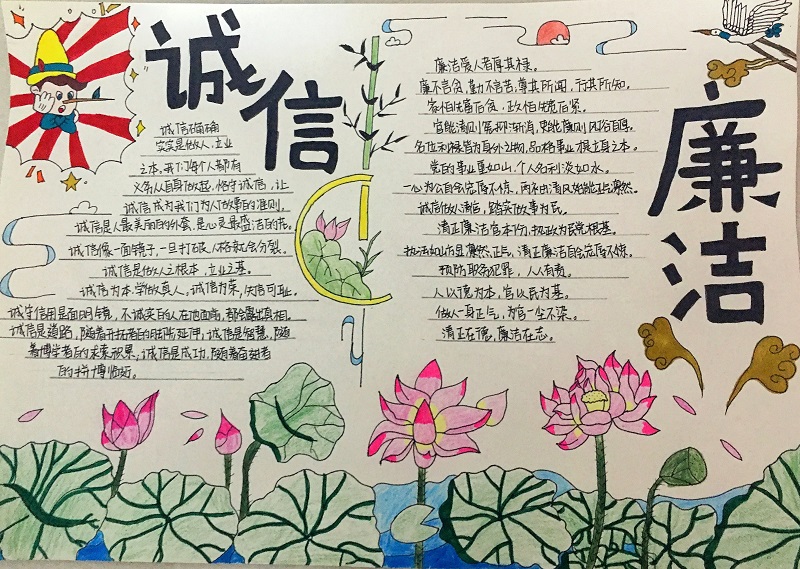 诚信
诚信 确确
实实是做人,立业
之本,我们每个人都有
义务从自身做起,恪守诚信,让
诚信成为我们为人做事的准则。
诚信是人最美丽的外套,是心灵最圣洁的花。
诚信像一面镜子,一旦打破人格就会分裂。
诚信是做人之根本,立业之基。
诚信为本,学做真人。诚信为荣,失信可耻。
诚守信用是面明镜,不诚实的人在他面前,都会露出真相。
诚信是道路,随着开拓者的脚步延伸,诚信是智慧,随
着博学者的求索积累,诚信是成功,随着奋进者
的拼搏临近。
廉洁
廉洁爱人者厚其禄。
廉不言贪,勤不言苦,尊其所闻,行其所知。
家怕先富后贫,政怕先宽后紧。
官能清则冤抑渐消,吏能廉则风俗自厚。
名位利禄皆为身外之物,品格事业才是立身之本。
党的事业重如山,个人名利淡如水。
一心为公自会宠辱不惊,两袖清风始能正气凛然。
诚信做人清白,踏实做事为民。
清正廉洁官本份,执政为民党根基。
执法如山方显凛然正气,清正廉洁自会宠辱不惊。
预防职务犯罪,人人有责。
人以德为本,官以民为基。
做人一身正气,为官一尘不染。
清正在德,廉洁在志。